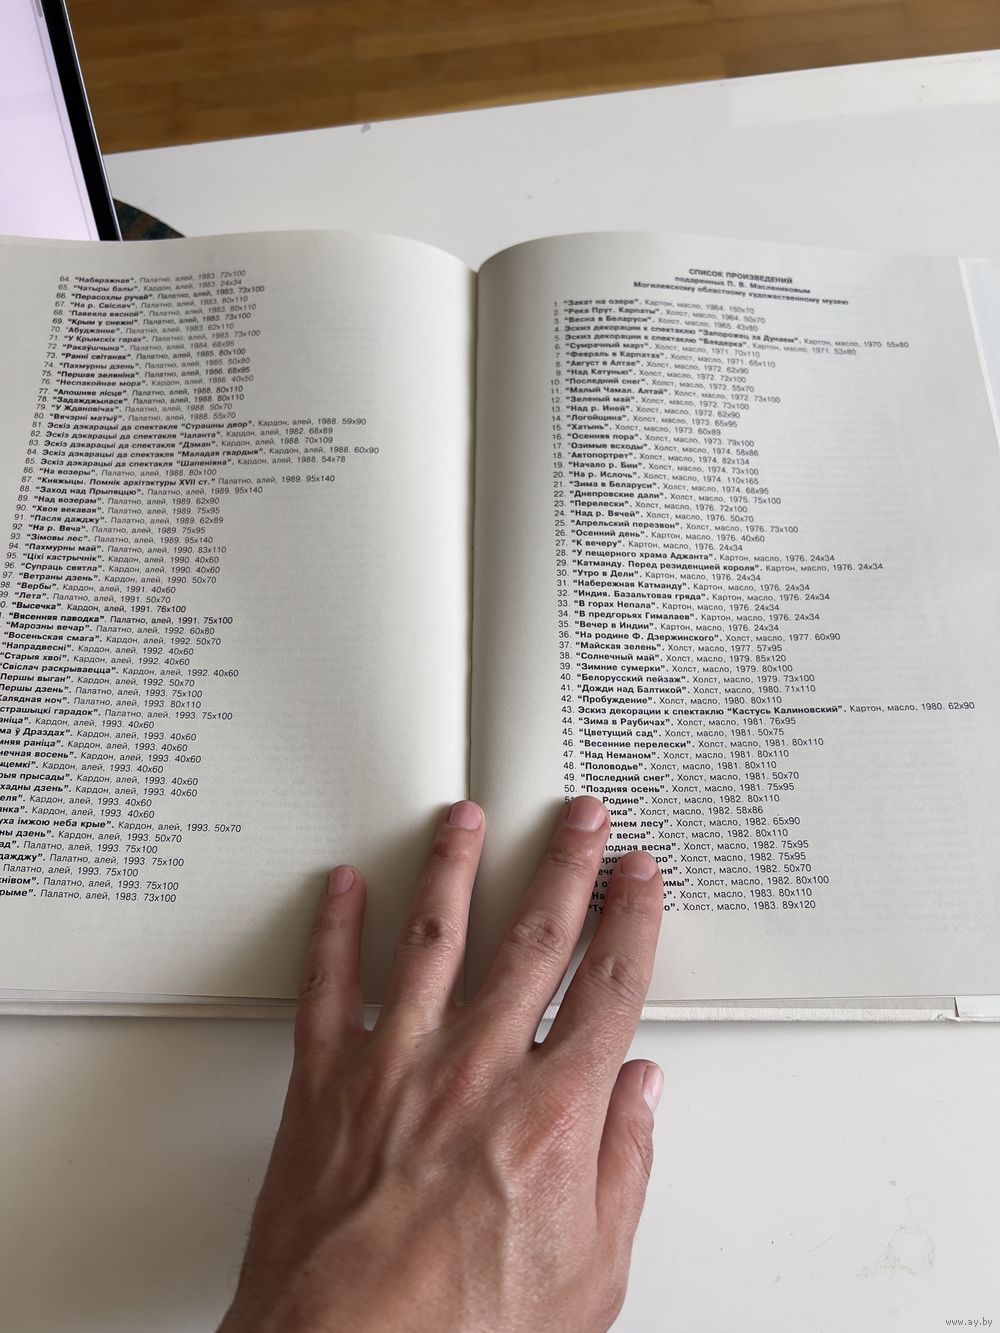 64. "Набярэжная". Палатно, алей, 1983. 72х100
65. "Чатыры балы". Кардон, алей, 1983. 24х34
66. "Перасохлы ручай". Палатно, алей, 1983. 73х100
67. "На р. Свіслач". Палатно, алей, 1983. 80х110
68. "Павеяла вясной". Палатно, алей, 1983. 80х110
69. "Крым у снежні". Палатно, алей, 1983. 73х100
70. "Абуджэнне". Палатно, алей, 1983. 62х110
71. "У Крымскіх гарах". Палатно, алей, 1983. 73х100
72. "Ракаўшчына". Палатно, алей, 1984. 68х95
73. "Ранні світанак". Палатно, алей, 1985. 80х100
74. "Пахмурны дзень". Палатно, алей, 1985. 50х80
75. "Першая зеляніна". Палатно, алей, 1986. 68х95
76. "Неспакойнае мора". Кардон, алей, 1986. 40х50
77. "Апошняе лісце". Палатно, алей, 1988. 80х110
78. "Задажджылася". Палатно, алей, 1988. 80х110
79. "У Ждановічах". Палатно, алей, 1988. 50х70
80. "Вячэрні матыў". Палатно, алей, 1988. 55х70
81. Эскіз дэкарацыі да спектакля "Страшны двор". Кардон, алей, 1988. 59х90
82. Эскіз дэкарацыі да спектакля "Іаланта". Кардон, алей, 1982. 68х89
83. Эскіз дэкарацыі да спектакля "Дэман". Кардон, алей, 1988. 70х109
84. Эскіз дэкарацыі да спектакля "Маладая гвардыя". Кардон, алей, 1988. 60х90
85. Эскіз дэкарацыі да спектакля "Шапеніяна". Кардон, алей, 1988. 54х78
86. "На возеры". Палатно, алей, 1988. 80х100
87. "Княжыцы. Помнік архітэктуры XVII ст." Палатно, алей, 1989. 95х140
88. "Заход над Прыпяццю". Палатно, алей, 1989. 95х140
89. "Над возерам". Палатно, алей, 1989. 62х90
90. "Хвоя векавая". Палатно, алей, 1989. 75х95
91. "Пасля дажджу". Палатно, алей, 1989. 62х89
92 "На р. Вяча". Палатно, алей, 1989. 75х95
93. "Зімовы лес". Палатно, алей, 1989. 95х140
94. "Пахмурны май". Палатно, алей, 1990. 83х110
95. "Ціхі кастрычнік". Палатно, алей, 1990. 40х60
96. "Супраць святла". Палатно, алей, 1990. 40х60
97. "Ветраны дзень". Палатно, алей, 1990. 50х70
98. "Вербы". Палатно, алей, 1991. 40х60
99. "Лета". Палатно, алей, 1991. 50х70
0. "Высечка". Кардон, алей, 1991. 76х100
. "Вясенняя паводка". Палатно, алей, 1991. 75х100
"Марозны вечар". Палатно, алей, 1992. 60х80
"Восеньская смага". Кардон, алей, 1992. 50х70
"Напрадвесні". Кардон, алей, 1992. 40х60
"Старыя хвоі". Кардон, алей, 1992. 40х60
"Свіслач раскрываецца". Кардон, алей, 1992. 40х60
Першы выган". Кардон, алей, 1992. 50х70
Першы дзень". Палатно, алей, 1993. 75х100
Калядная ноч". Палатно, алей, 1993. 80х110
страшыцкі гарадок". Палатно, алей, 1993. 75х100
аніца". Кардон, алей, 1993. 40х60
ма ў Драздах". Кардон, алей, 1993. 40х60
мняя раніца". Кардон, алей, 1993. 40х60
нечная восень". Кардон, алей, 1993. 40х60
нцемкі". Кардон, алей, 1993. 40х60
рыя прысады". Кардон, алей, 1993. 40х60
хадны дзень". Кардон, алей, 1993. 40х60
еля". Кардон, алей, 1993. 40х60
янка". Кардон, алей, 1993. 40х60
уха імжою неба крые". Кардон, алей, 1993. 50х70
ны дзень". Кардон, алей, 1993. 50х70
ад". Палатно, алей, 1993. 75х100
даджу". Палатно, алей, 1993. 75х100
Палатно, алей, 1993. 75х100
жнівом". Палатно, алей, 1993. 75х100
рыме". Палатно, алей, 1983. 73х100
СПИСОК ПРОИЗВЕДЕНИЙ
подаренных П. В. Маслениковым
Могилевскому областному художественному музею
1. "Закат на озере". Картон, масло, 1964. 150х70
2. "Река Прут. Карпаты". Холст, масло, 1964. 50х70
3. "Весна в Беларуси". Холст, масло, 1965. 43х80
4. Эскиз декорации к спектаклю "Запорожец за Дунаем". Картон, масло, 1970. 55х80
5. Эскиз декорации к спектаклю "Баядерка". Картон, масло, 1971. 53х80
6. "Сумрачный март". Холст, масло, 1971. 70х110
7. "Февраль в Карпатах". Холст, масло, 1971. 65х110
8. "Август в Алтае". Холст, масло, 1972. 62х90
9. "Над Катунью". Холст, масло, 1972. 72х100
10. "Последний снег". Холст, масло, 1972. 55х70
11. "Малый Чамал. Алтай". Холст, масло, 1972. 73х100
12. "Зеленый май". Холст, масло, 1972. 73х100
13. "Над р. Иней". Холст, масло, 1972. 62х90
14. "Логойщина". Холст, масло, 1973. 65х95
15. "Хатынь". Холст, масло, 1973. 60х89
16. "Осенняя пора". Холст, масло, 1973. 79х100
17. "Озимые всходы". Холст, масло, 1974. 58х86
18. "Автопортрет". Холст, масло, 1974. 82х134
19. "Начало р. Бии". Холст, масло, 1974. 73х100
20. "На р. Ислочь". Холст, масло, 1974. 110х165
21. "Зима в Беларуси". Холст, масло, 1974. 68х95
22. "Днепровские дали". Холст, масло, 1975. 75х100
23. "Перелески". Холст, масло, 1976. 72х100
24. "Над р. Вячей". Холст, масло, 1976. 50х70
25. "Апрельский перезвон". Холст, масло, 1976. 73х100
26. "Осенний день". Картон, масло, 1976. 40х60
27. "К вечеру". Картон, масло, 1976. 24х34
28. "У пещерного храма Аджанта". Картон, масло, 1976. 24х34
29. "Катманду. Перед резиденцией короля". Картон, масло, 1976. 24х34
30. "Утро в Дели". Картон, масло, 1976. 24х34
31. "Набережная Катманду". Картон, масло, 1976. 24х34
32. "Индия. Базальтовая гряда". Картон, масло, 1976. 24х34
33. "В горах Непала". Картон, масло, 1976. 24х34
34. "В предгорьях Гималаев". Картон, масло, 1976. 24х34
35. "Вечер в Индии". Картон, масло, 1976. 24х34
36. "На родине Ф. Дзержинского". Холст, масло, 1977. 60х90
37. "Майская зелень". Холст, масло, 1977. 57х95
38. "Солнечный май". Холст, масло, 1979. 85х120
39. "Зимние сумерки". Холст, масло, 1979. 80х100
40. "Белорусский пейзаж". Холст, масло, 1979. 73х100
41. "Дожди над Балтикой". Холст, масло, 1980. 71х110
42. "Пробуждение". Холст, масло, 1980. 80х110
43. Эскиз декорации к спектаклю "Кастусь Калиновский". Картон, масло, 1980. 62х90
44. "Зима в Раубичах". Холст, масло, 1981. 76х95
45. "Цветущий сад". Холст, масло, 1981. 50х75
46. "Весенние перелески". Холст, масло, 1981. 80х110
47. "Над Неманом". Холст, масло, 1981. 80х110
48. "Половодье". Холст, масло, 1981. 80х110
49. "Последний снег". Холст, масло, 1981. 50х70
50. "Поздняя осень". Холст, масло, 1981. 75х95
Родине". Холст, масло, 1982. 80х110
тика". Холст, масло, 1982. 58х86
мнем лесу". Холст, масло, 1982. 65х90
т весна". Холст, масло, 1982. 80х110
лодная весна". Холст, масло, 1982. 75х95
ороз ро". Холст, масло, 1982. 75х95
ечер ня". Холст, масло, 1982. 50х70
в о имы". Холст, масло, 1982. 80х100
"На е". Холст, масло, 1983. 80х110
"Ту о". Холст, масло, 1983. 89х120
www.ay.by